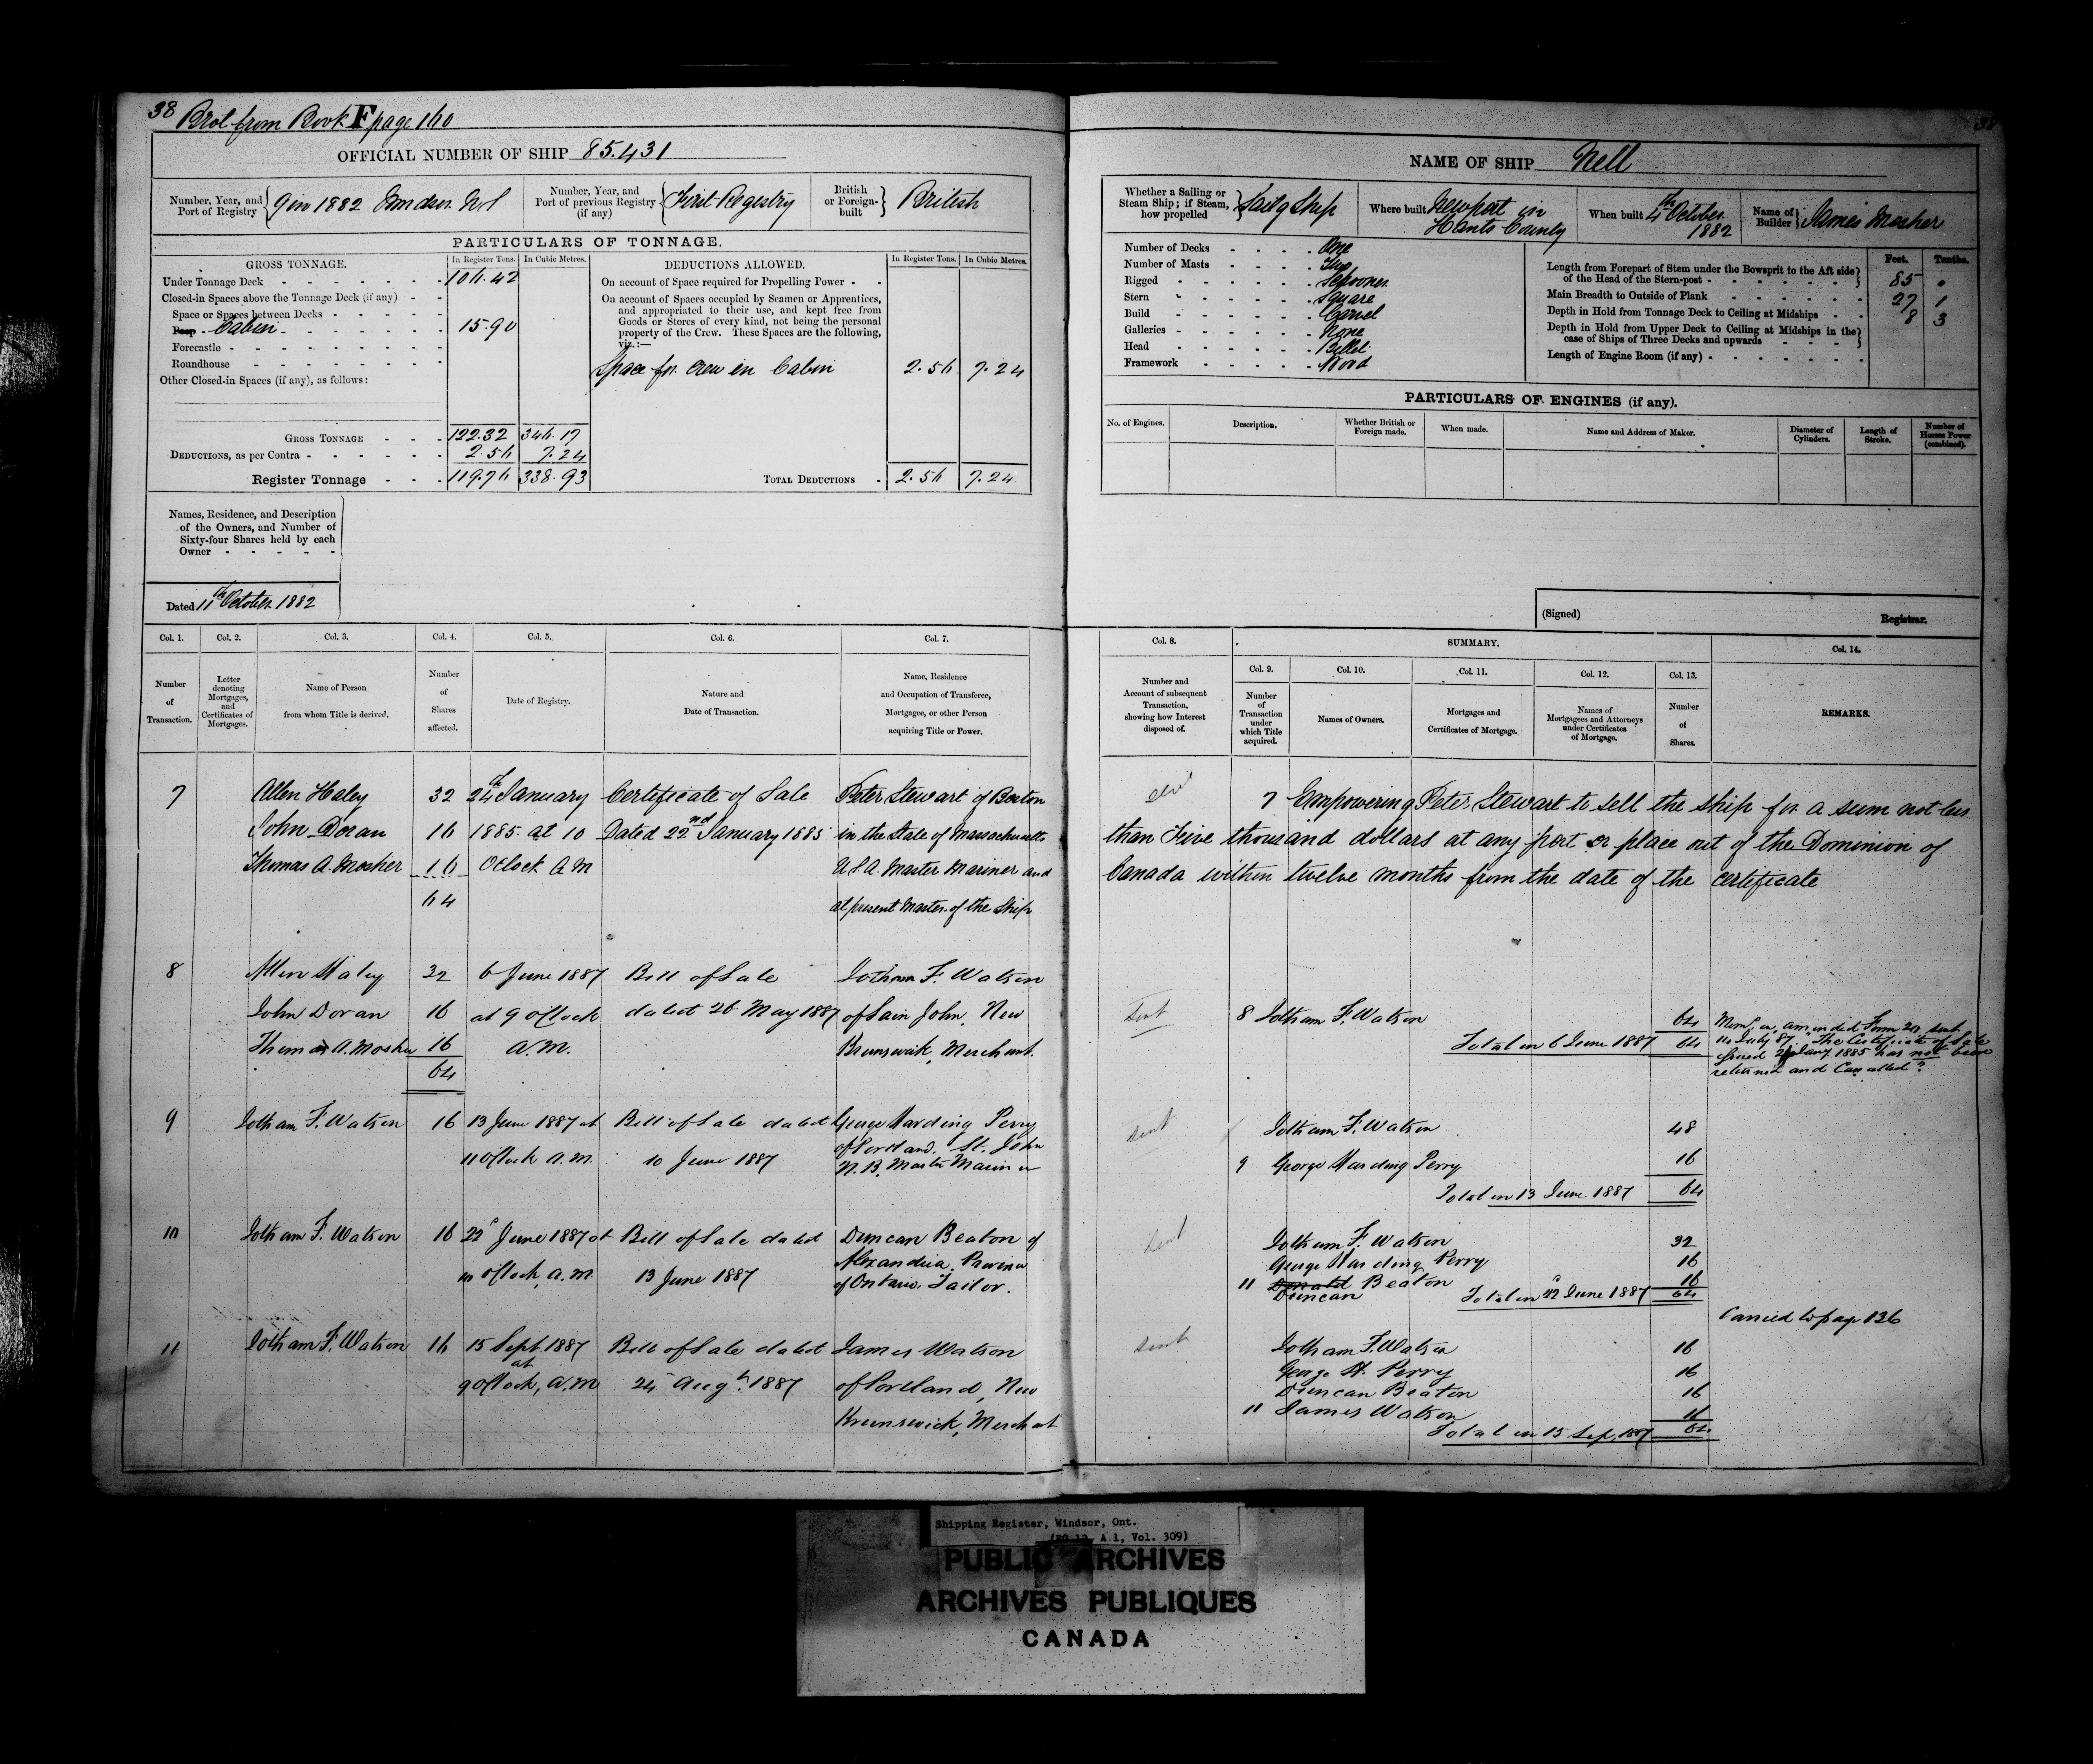 38 Brot from Book F page 160
38
OFFICIAL NUMBER OF SHIP 85.431
Number, Year, and Port of Registry 9 in 1882 Windsor NS
Number, Year, and Port of previous Registry (if any) First Registry
British or Foreign-built British
PARTICULARS OF TONNAGE.
GROSS TONNAGE. In Register Tons. In Cubic Metres.
Under Tonnage Deck 106.42
Closed-in Spaces above the Tonnage Deck (if any)
Space or Spaces between Decks
Poop Cabin 15.90
Forecastle
Roundhouse
Other Closed-in Spaces (if any), as follows:
GROSS TONNAGE 122.32 346.17
DEDUCTIONS, as per Contra 2.56 7.24
Register Tonnage 119.76 338.93
DEDUCTIONS ALLOWED. In Register Tons. In Cubic Metres.
On account of Space required for Propelling Power
On account of Spaces occupied by Seamen or Apprentices,
and appropriated to their use, and kept free from
Goods or Stores of every kind, not being the personal
property of the Crew. These Spaces are the following,
viz.:—
Space for crew in Cabin 2.56 7.24
TOTAL DEDUCTIONS 2.56 7.24
Names, Residence, and Description
of the Owners, and Number of
Sixty-four Shares held by each
Owner
Dated 11th October 1882
NAME OF SHIP Nell
Whether a Sailing or Steam Ship; if Steam, how propelled Sailg Ship
Where built Newport in Hants County
When built 4th October 1882
Name of Builder James Mosher
Number of Decks One
Number of Masts Two
Rigged Schooner
Stern Square
Build Carvel
Galleries None
Head Billet
Framework Wood
Feet. Tenths.
Length from Forepart of Stem under the Bowsprit to the Aft side of the Head of the Stern-post 85 .
Main Breadth to Outside of Plank 27 1
Depth in Hold from Tonnage Deck to Ceiling at Midships 8 3
Depth in Hold from Upper Deck to Ceiling at Midships in the case of Ships of Three Decks and upwards
Length of Engine Room (if any)
PARTICULARS OF ENGINES (if any).
No. of Engines. Description. Whether British or Foreign made. When made. Name and Address of Maker. Diameter of Cylinders. Length of Stroke. Number of Horses Power (combined).
(Signed) Registrar.
Col. 1. Col. 2. Col. 3. Col. 4. Col. 5. Col. 6. Col. 7.
Number of Transaction.
Letter denoting Mortgages, and Certificates of Mortgages.
Name of Person from whom Title is derived.
Number of Shares affected.
Date of Registry.
Nature and Date of Transaction.
Name, Residence and Occupation of Transferee, Mortgagee, or other Person acquiring Title or Power.
Col. 8. SUMMARY. Col. 14.
Col. 9. Col. 10. Col. 11. Col. 12. Col. 13.
Number and Account of subsequent Transaction, showing how Interest disposed of.
Number of Transaction under which Title acquired.
Names of Owners.
Mortgages and Certificates of Mortgage.
Names of Mortgagees and Attorneys under Certificates of Mortgage.
Number of Shares.
REMARKS.
7 Allen Haley 32 24th January Certificate of Sale Peter Stewart of Boston
John Doran 16 1885 at 10 Dated 22nd January 1885 in the State of Massachusetts
Thomas A. Mosher 16 Oclock AM U.S.A. Master Mariner and
64 at present Master of the Ship
7 Empowering Peter Stewart to sell the ship for a sum not less
than Five thousand dollars at any port or place out of the Dominion of
Canada within twelve months from the date of the certificate
8 Allen Haley 32 6 June 1887 Bill of Sale Jotham F. Watson
John Doran 16 at 9 o'clock dated 26 May 1887 of Sain John, New
Thomas A. Mosher 16 A.M. Brunswick, Merchant.
64
Sent 8 Jotham F. Watson 64
Total in 6 June 1887 64
14 July 87. The Certificate of Sale
issued 24 Jany 1885 has not been
returned and Cancelled?
9 Jotham F. Watson 16 13 June 1887 at Bill of Sale dated George Harding Perry
11 o'clock a.m. 10 June 1887 of Portland, St. John
N.B. Master Mariner
Sent Jotham F. Watson 48
9 George Harding Perry 16
Total in 13 June 1887 64
10 Jotham F. Watson 16 22d June 1887 at Bill of Sale dated Duncan Beaton of
10 o'clock, a.m. 13 June 1887 Alexandria, Province
of Ontario, Tailor.
Sent Jotham F. Watson 32
George Harding Perry 16
11 Donald Beaton 16
Duncan Total in 22d June 1887 64
Carried to page 136
11 Jotham F. Watson 16 15 Sept. 1887 Bill of Sale dated James Watson
at
9 o'clock, A.M. 24 Augt. 1887 of Portland, New
Brunswick, Merchant
Sent Jotham F. Watson 16
George H. Perry 16
Duncan Beaton 16
11 James Watson 16
Total in 15 Sep, 1887 64
Shipping Register, Windsor, Ont.
(RG 12, A 1, Vol. 309)
PUBLIC ARCHIVES
ARCHIVES PUBLIQUES
CANADA